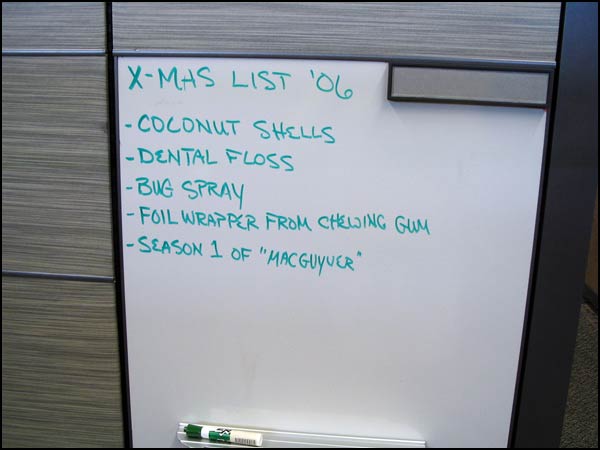 X-MAS LIST '06
- COCONUT SHELLS
- DENTAL FLOSS
- BUG SPRAY
- FOIL WRAPPER FROM CHEWING GUM
- SEASON 1 OF "MACGUYVER"